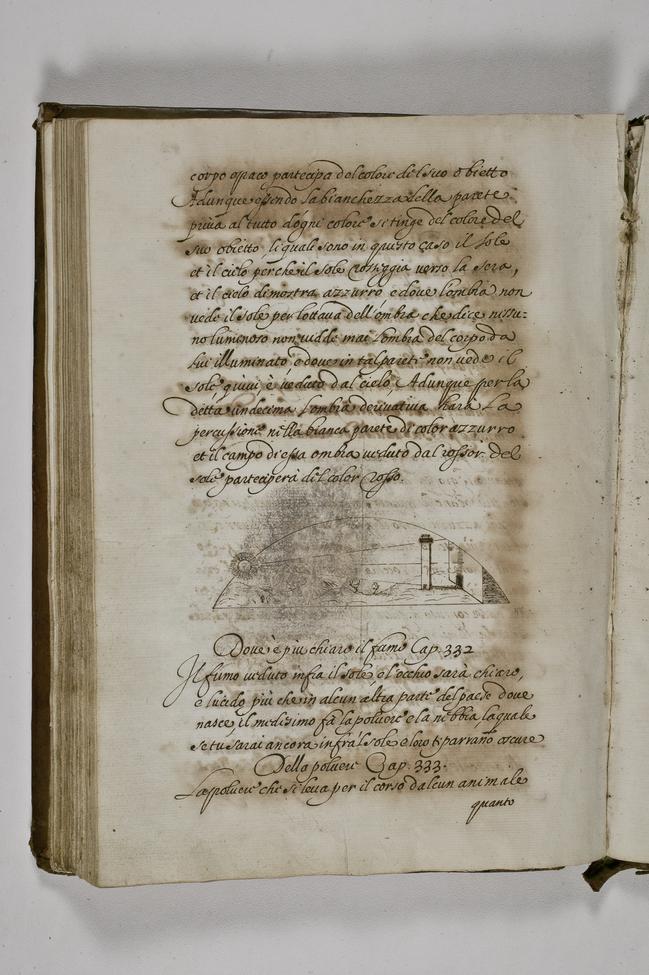 corpo opaco partecipa del colore del suo obietto
Adunque essendo la bianchezza della parete
priva al tutto d'ogni colore si tinge del colore del
suo obietto, li quali sono in questo caso il sole
et il cielo perche il sole rosseggia verso la sera,
et il cielo dimostra azzurro, e dove l'ombra non
vede il sole per l'ottava dell'ombra che dice nissu-
no luminoso non vidde mai l'ombra del corpo da
lui illuminato e dove in tal parete non vede il
sole quivi è veduto dal cielo, Adunque per la
detta undecima l'ombra derivativa harà la
percussione nella bianca parete di color azzurro
et il campo di essa ombra veduto dal rossor del
sole parteciperà del color rosso.
Dove è piu chiaro il fumo Cap. 332
Il fumo veduto infra il sole, e l'occhio sarà chiaro,
e lucido più che in alcun altra parte del paese dove
nasce, il medesimo fà la polvere e la nebbia, la quale
se tu sarai ancora infrà l sole e loro ti parranno oscure
Della polvere Cap. 333.
La polvere che si leva per il corso d'alcun animale
quanto